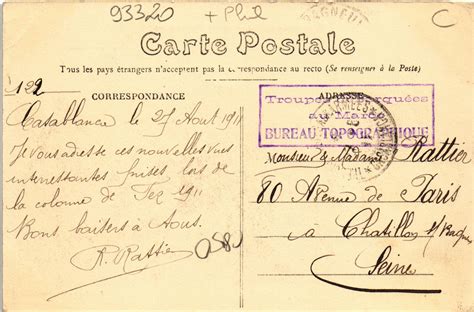 93320 + Phil
C
BAGNEUX
Carte Postale
Tous les pays étrangers n'acceptent pas la correspondance au recto (Se renseigner à la Poste)
CORRESPONDANCE
ADRESSE
122
Casablanca le 27 Aout 1911
Je vous adresse ces nouvelles vues
interressantes prises lors de
la colonne de Fez 1911
Bons baisers à tous.
R. Rattier
Troupes Débarquées
au Maroc
BUREAU TOPOGRAPHIQUE
Monsieur & Madame Rattier
80 Avenue de Paris
à Chatillon s/ Bagneux
Seine